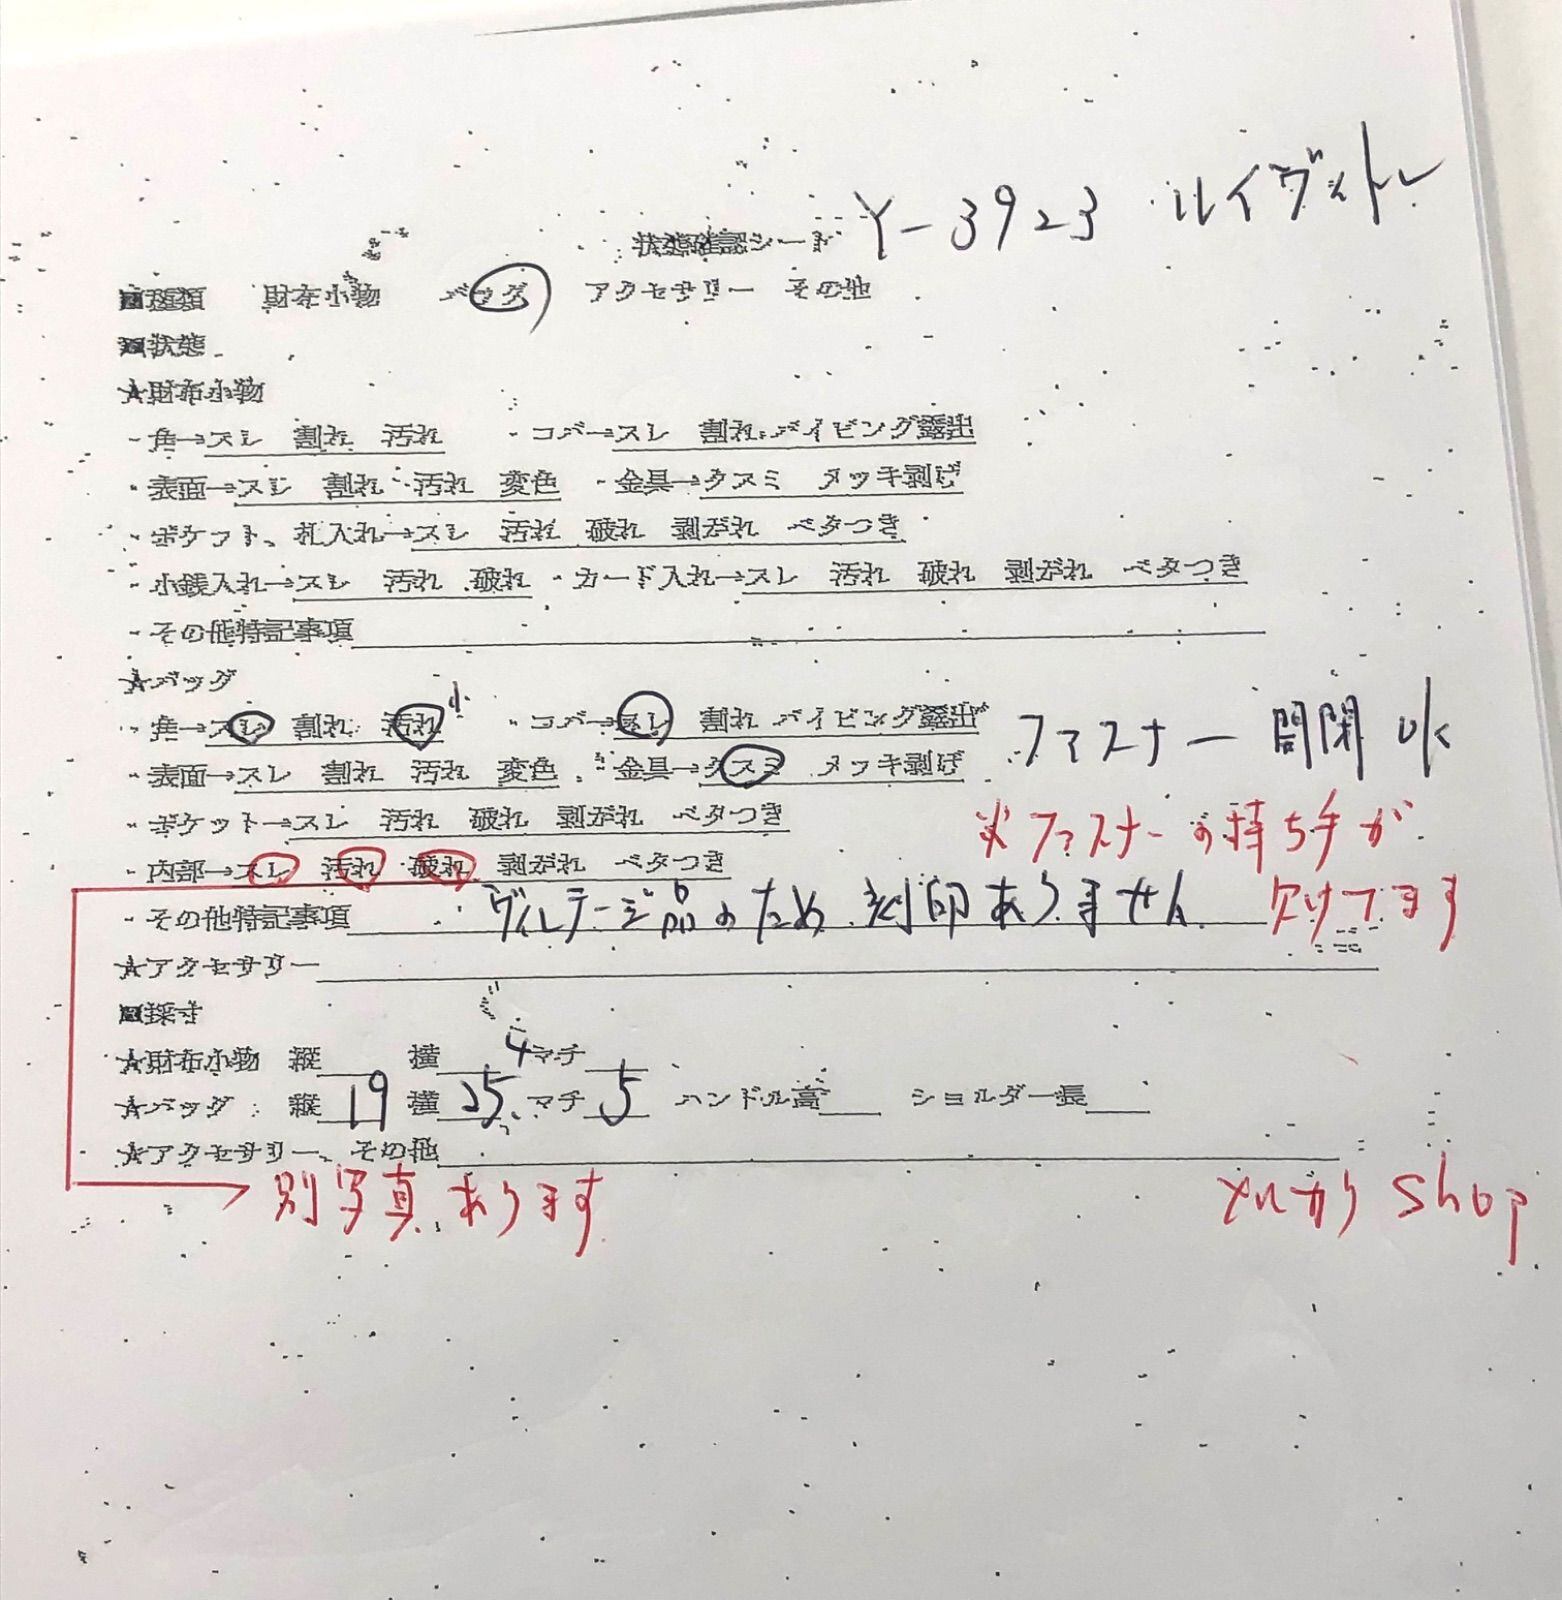 Y-3923 ルイヴィトン
状態確認シート
■種類 財布小物 バッグ アクセサリー その他
■状態
★財布小物
・角→スレ 割れ 汚れ ・コバ→スレ 割れ パイピング露出
・表面→スレ 割れ 汚れ 変色 ・金具→クスミ メッキ剥げ
・ポケット、札入れ→スレ 汚れ 破れ 剥がれ ベタつき
・小銭入れ→スレ 汚れ 破れ ・カード入れ→スレ 汚れ 破れ 剥がれ ベタつき
・その他特記事項
★バッグ
・角→スレ 割れ 汚れ 小 ・コバ→スレ 割れ パイピング露出 ファスナー開閉ok
・表面→スレ 割れ 汚れ 変色 ・金具→クスミ メッキ剥げ
・ポケット→スレ 汚れ 破れ 剥がれ ベタつき ※ファスナーの持ち手が
・内部→スレ 汚れ 破れ 剥がれ ベタつき
欠けてます
・その他特記事項 ヴィンテージ品のため刻印ありません
★アクセサリー
■採寸
★財布小物 縦 横 マチ
4
★バッグ 縦 19 横 25 マチ 5 ハンドル高 ショルダー長
★アクセサリー、その他
別写真あります メルカリ shop